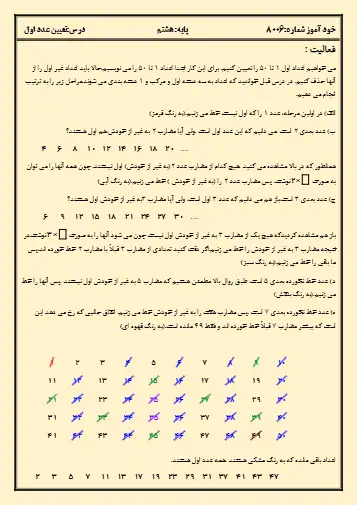 خود آموز شماره: ۸۰۰۶ پایه: هشتم درس: تعیین عدد اول
فعالیت :
می خواهیم اعداد اول ۱ تا ۵۰ را تعیین کنیم. برای این کار ابتدا اعداد ۱ تا ۵۰ را می نویسیم. حالا باید اعداد غیر اول را از
آنها حذف کنیم. در درس قبل خواندید که اعداد به سه دسته اول و مرکب و ۱ دسته بندی می شوند. مراحل زیر را به ترتیب
انجام می دهیم.
الف) در اولین مرحله، عدد ۱ را که اول نیست خط می زنیم. (به رنگ قرمز)
ب) عدد بعدی ۲ است. می دانیم که این عدد اول است. ولی آیا مضارب ۲ به غیر از خودش هم اول هستند؟
۴ ۶ ۸ ۱۰ ۱۲ ۱۴ ۱۶ ۱۸ ۲۰ ....
همانطور که در بالا مشاهده می کنید هیچ کدام از مضارب عدد ۲ (به غیر از خودش) اول نیستند. چون همه آنها را می توان
به صورت □×۲ نوشت. پس مضارب عدد ۲ را (به غیر از خودش) خط می زنیم. (به رنگ آبی)
ج) عدد بعدی ۳ است. باز هم می دانیم که عدد ۳ اول است. ولی آیا مضارب ۳، به غیر از خودش اول هستند؟
۶ ۹ ۱۲ ۱۵ ۱۸ ۲۱ ۲۴ ۲۷ ۳۰ ....
باز هم مشاهده کردید که هیچ یک از مضارب ۳ به غیر از خودش اول نیست چون می شود آنها را به صورت □×۳ نوشت. در
نتیجه مضارب ۳ به غیر از خودش را خط می زنیم. اگر دقت کنید تعدادی از مضارب ۳ قبلاً با مضارب ۲ خط خورده اند. پس
ما بقی را خط می زنیم. (به رنگ سبز)
د) عدد خط نخورده بعدی ۵ است. طبق روال بالا مطمئن هستیم که مضارب ۵ به غیر از خودش اول نیستند. پس آنها را خط
می زنیم. (به رنگ بنفش)
ه) عدد خط نخورده بعدی ۷ است. پس مضارب هفت را به غیر از خودش خط می زنیم. اتفاق جالبی که رخ می دهد این
است که بیشتر مضارب ۷ قبلاً خط خورده اند و فقط ۴۹ مانده است. (به رنگ قهوه ای)
۱ ۲ ۳ ۴ ۵ ۶ ۷ ۸ ۹ ۱۰
۱۱ ۱۲ ۱۳ ۱۴ ۱۵ ۱۶ ۱۷ ۱۸ ۱۹ ۲۰
۲۱ ۲۲ ۲۳ ۲۴ ۲۵ ۲۶ ۲۷ ۲۸ ۲۹ ۳۰
۳۱ ۳۲ ۳۳ ۳۴ ۳۵ ۳۶ ۳۷ ۳۸ ۳۹ ۴۰
۴۱ ۴۲ ۴۳ ۴۴ ۴۵ ۴۶ ۴۷ ۴۸ ۴۹ ۵۰
اعداد باقی مانده که به رنگ مشکی هستند، همه عدد اول هستند.
۲ ۳ ۵ ۷ ۱۱ ۱۳ ۱۷ ۱۹ ۲۳ ۲۹ ۳۱ ۳۷ ۴۱ ۴۳ ۴۷